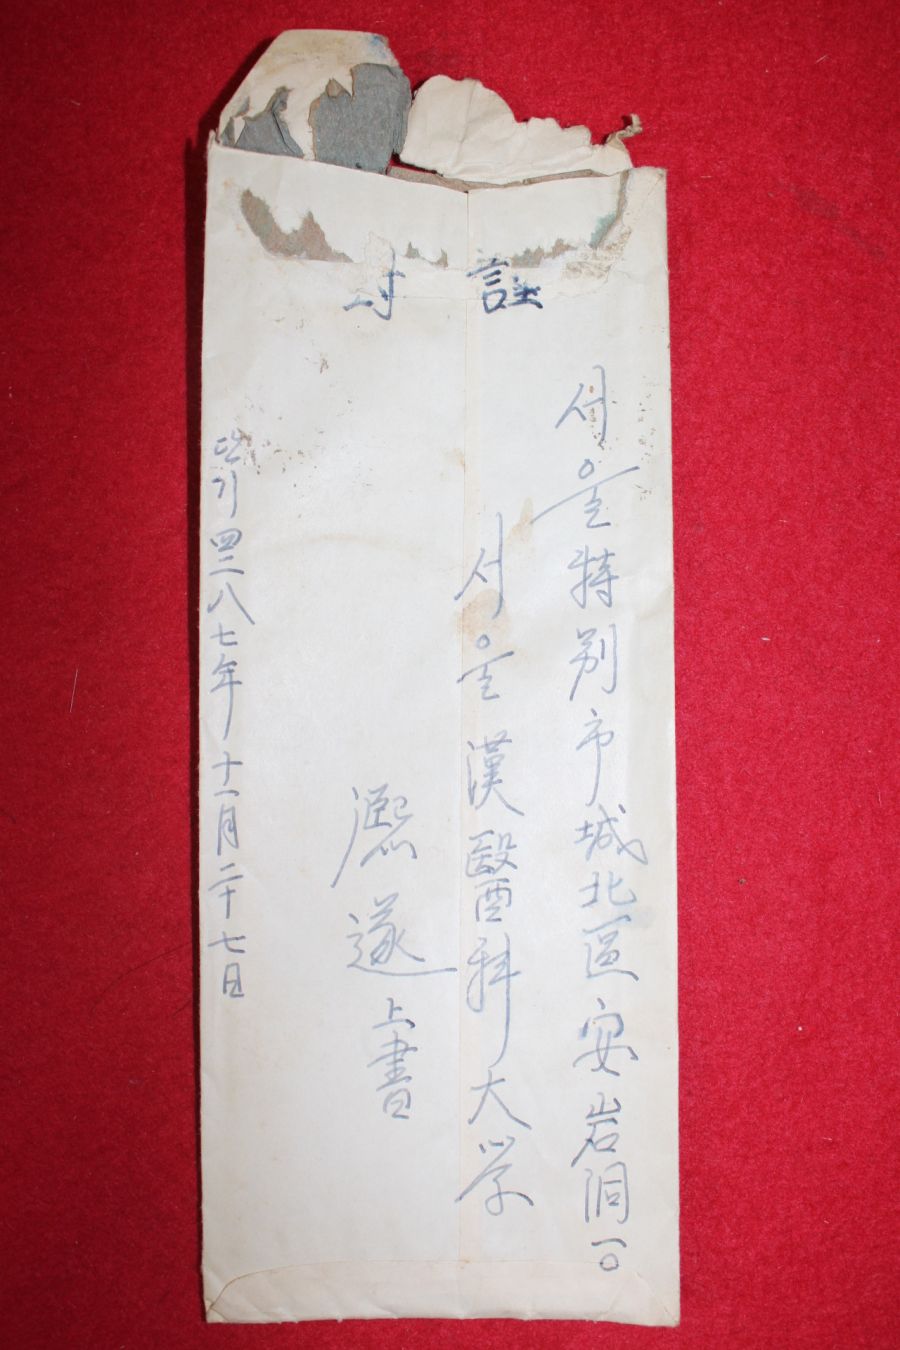 서울特別市城北區安岩洞一〇
서울漢醫科大学
熙遂上書
단기四二八七年十一月二十七日